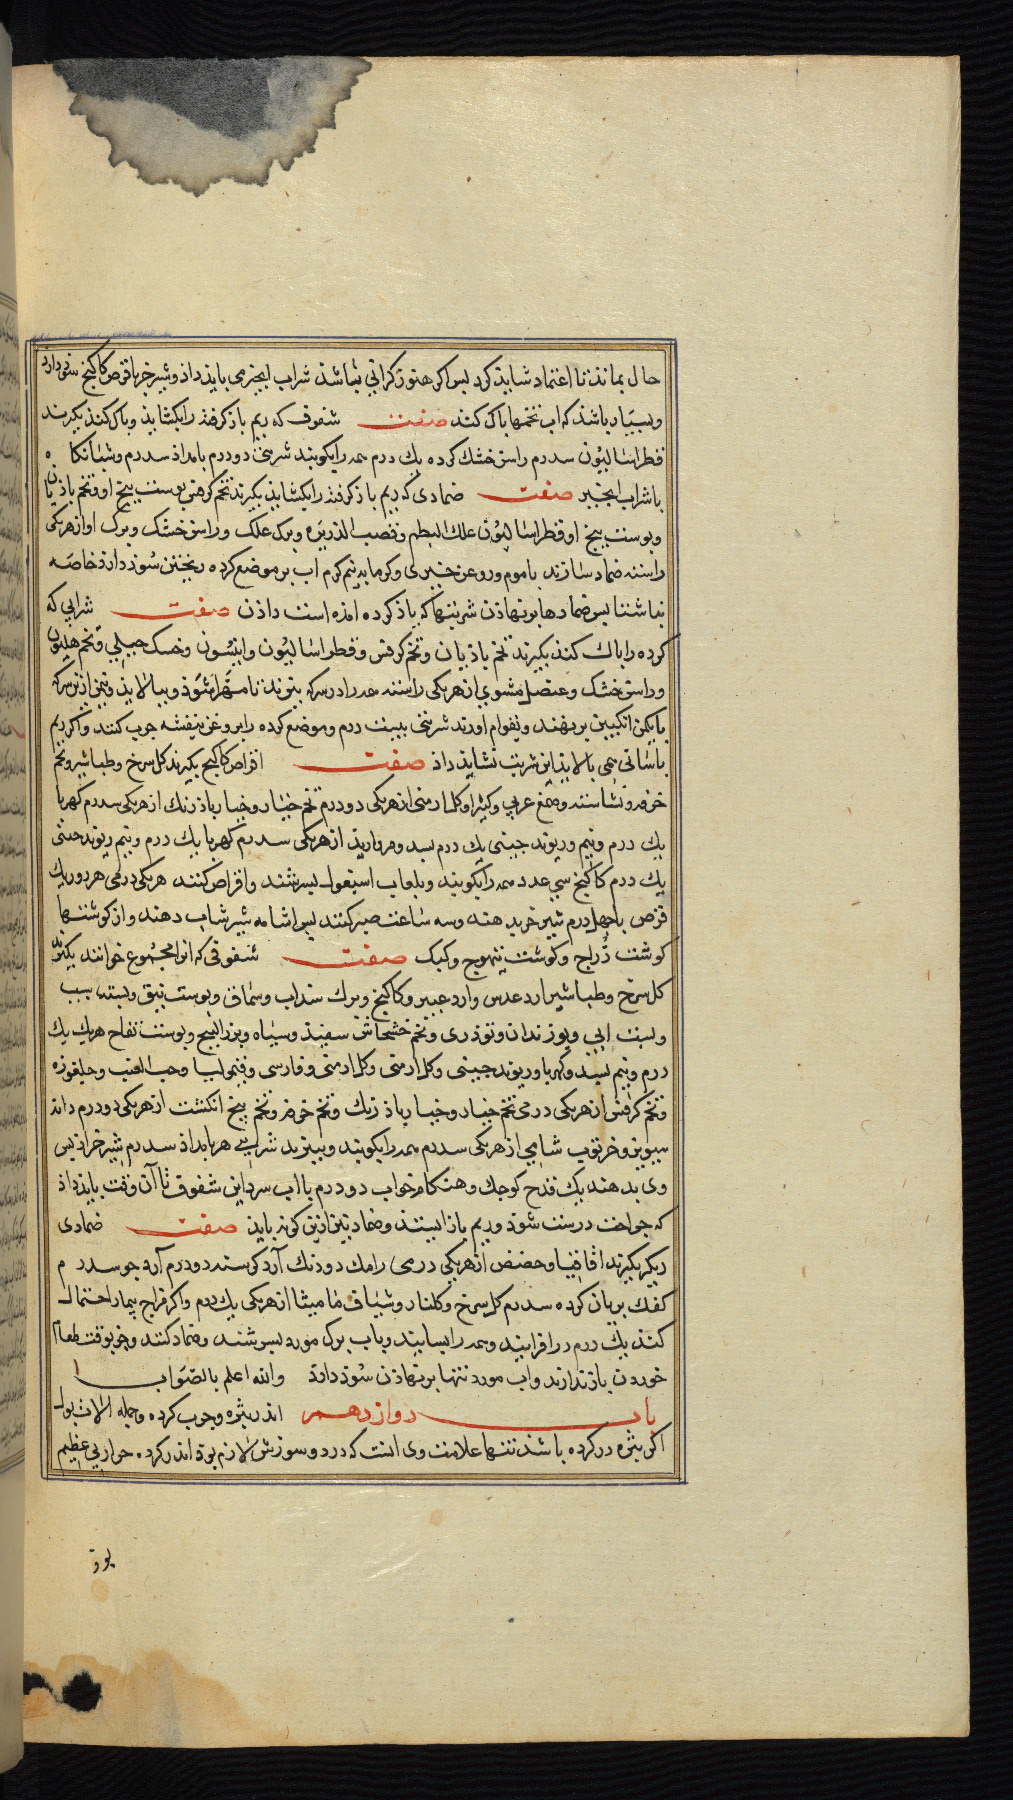 حال بماند تا اعتماد شاید کرد پس اکر هنوز کرانی باشد شراب انجیر می باید داذ و شیر خر با قرص کاکنج سوذ دارد
وبسیار باشد که اب تخمها پاک کند صفت شفوف که ریم باز کرفته را بکشاید وپاک کند بکیرند
فطراسالیون سدرم راسن خشک کرده یک درم همه را بکوبند شربتی دو درم بامداذ سدرم وشبانکاه
با شراب انجیر صفت ضمادی که ریم باز کرفته را بکشاید بکیرند تخم کرفس پوست بیخ او وتخم باذیان
وپوست بیخ او فطراسالیون علک البطم وقصب الذریره وبرک علک وراسن خشک وبرک او از هر یکی
راسته ضماد سازند با موم وروغن خیری وکرمابه نیم کرم اب بر موضع کرده ریختن سوذ دارد خاصه
ناشتا پس ضمادها بر نهاذن شربتها که یاذ کرده امذه است داذن صفت شرابی که
کرده را پاک کند بکیرند تخم باذیان وتخم کرفس وفطراسالیون وانیسون وخسک جبلی وتخم هلیون
وراسن خشک وعنصل مشوی از هر یکی راسته همه را در سرکه بپزند تا مهرا شوذ وبپالایند ونیز از سرکه
با یکمن انکبین بر نهند وبقوام اورند شربتی بیست درم وموضع کرده را بروغن بنفشه چرب کنند واکر ریم
باسانی می پالاید این شربت نشاید داذ صفت اقراص کاکنج بکیرند کل سرخ وطباشیر وتخم
خرفه ونشاسته وصمغ عربی وکتیرا وکل ارمنی از هر یکی دو درم تخم خیار وخیار باذرنک از هر یکی سدرم کهربا
یک درم ونیم وریوند چینی یک درم بسد ومروارید از هر یکی سدرم کهربا یک درم ونیم ریوند چینی
یک درم کاکنج سی عدد همه را بکوبند وبلعاب اسبغول بسرشند واقراص کنند هر یکی درمی هر روز یک
قرص با چهل درم شیر خر بدهند وسه ساعت صبر کنند پس اشامه شیر شاب دهند واز کوشتها
کوشت دراج وکوشت تیهوج وکبک صفت شفوفی که انرا مجموع خوانند بکیرند
کل سرخ وطباشیر ارد عدس وارد جبیر وکاکنج وبرک سنداب وسماق وپوست نبق وپسته سیب
وبست ابی وبوزندان وتوذری وتخم خشخاش سفیذ وسیاه وبزر البنج وپوست تفاح هر یک یک
درم ونیم بسد وکهربا وریوند چینی وکل ارمنی وکل ارمنی وفارسی وفیمولیا وحب العنب وچلغوزه
وتخم کرفس از هر یکی درمی تخم خیار وخیار باذرنک وتخم خرفه وتخم بیخ انکشت از هر یکی دو درم دانه
میویز وخرنوب شامی از هر یکی سدرم همه را بکوبند وببیزند شرابی هر بامداذ سدرم شیر خر از پس
وی بدهند یک قدح کوچک وهنکام خواب دو درم با اب سرد این شفوف تا آن وقت باید داذ
که جراحت درست شوذ وریم باز ایستد وضماد نیز ازین کونه باید صفت ضمادی
دیکر بکیرند اقاقیا وحضض از هر یکی درمی رامک دو دنک آرد کرسنه دو درم آرد جو سدرم
کفک بریان کرده سدرم کل سرخ وکلنار وشیاف مامیثا از هر یکی یک درم واکر مزاج بیمار احتمال
کند یک درم در افزایند وهمه را بسایند وباب برک مورد بسرشند وضماد کنند وچو بوقت طعام
خوردن باز ندارند واب مورد تنها بر نهاذن سوذ دارد والله اعلم بالصواب
باب دوازدهم اندر بثره وجرب کرده وجمله الات بول
اکر بثره در کرده باشد تنها علامت وی انست که درد وسوزش لازم بوذ اندر کرده حوالی عظیم
بوذ